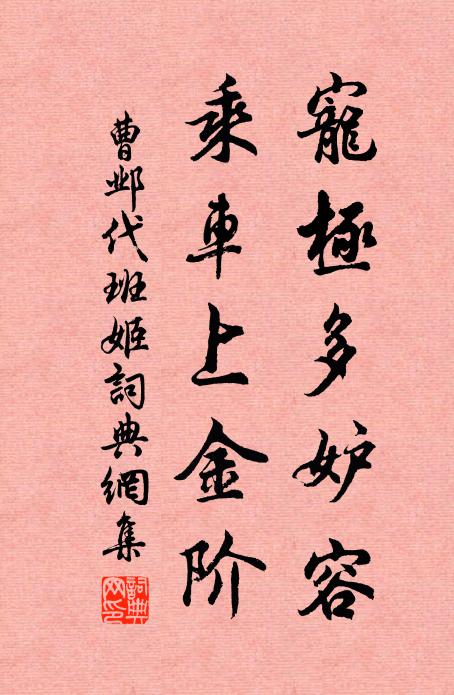 寵極多妒容
乘車上金阶
曹邺代班姬詞典網集
詞典網印